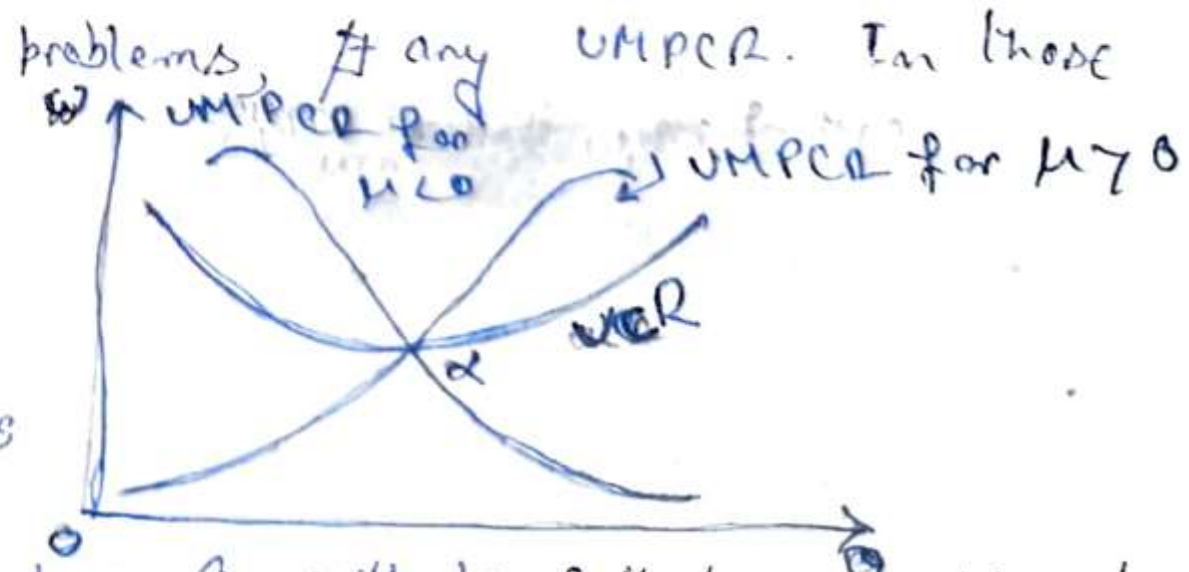 problems, ∄ any UMPCR. In those
ω UMPCR for
μ<0
UMPCR for μ>0
UCR
α
O